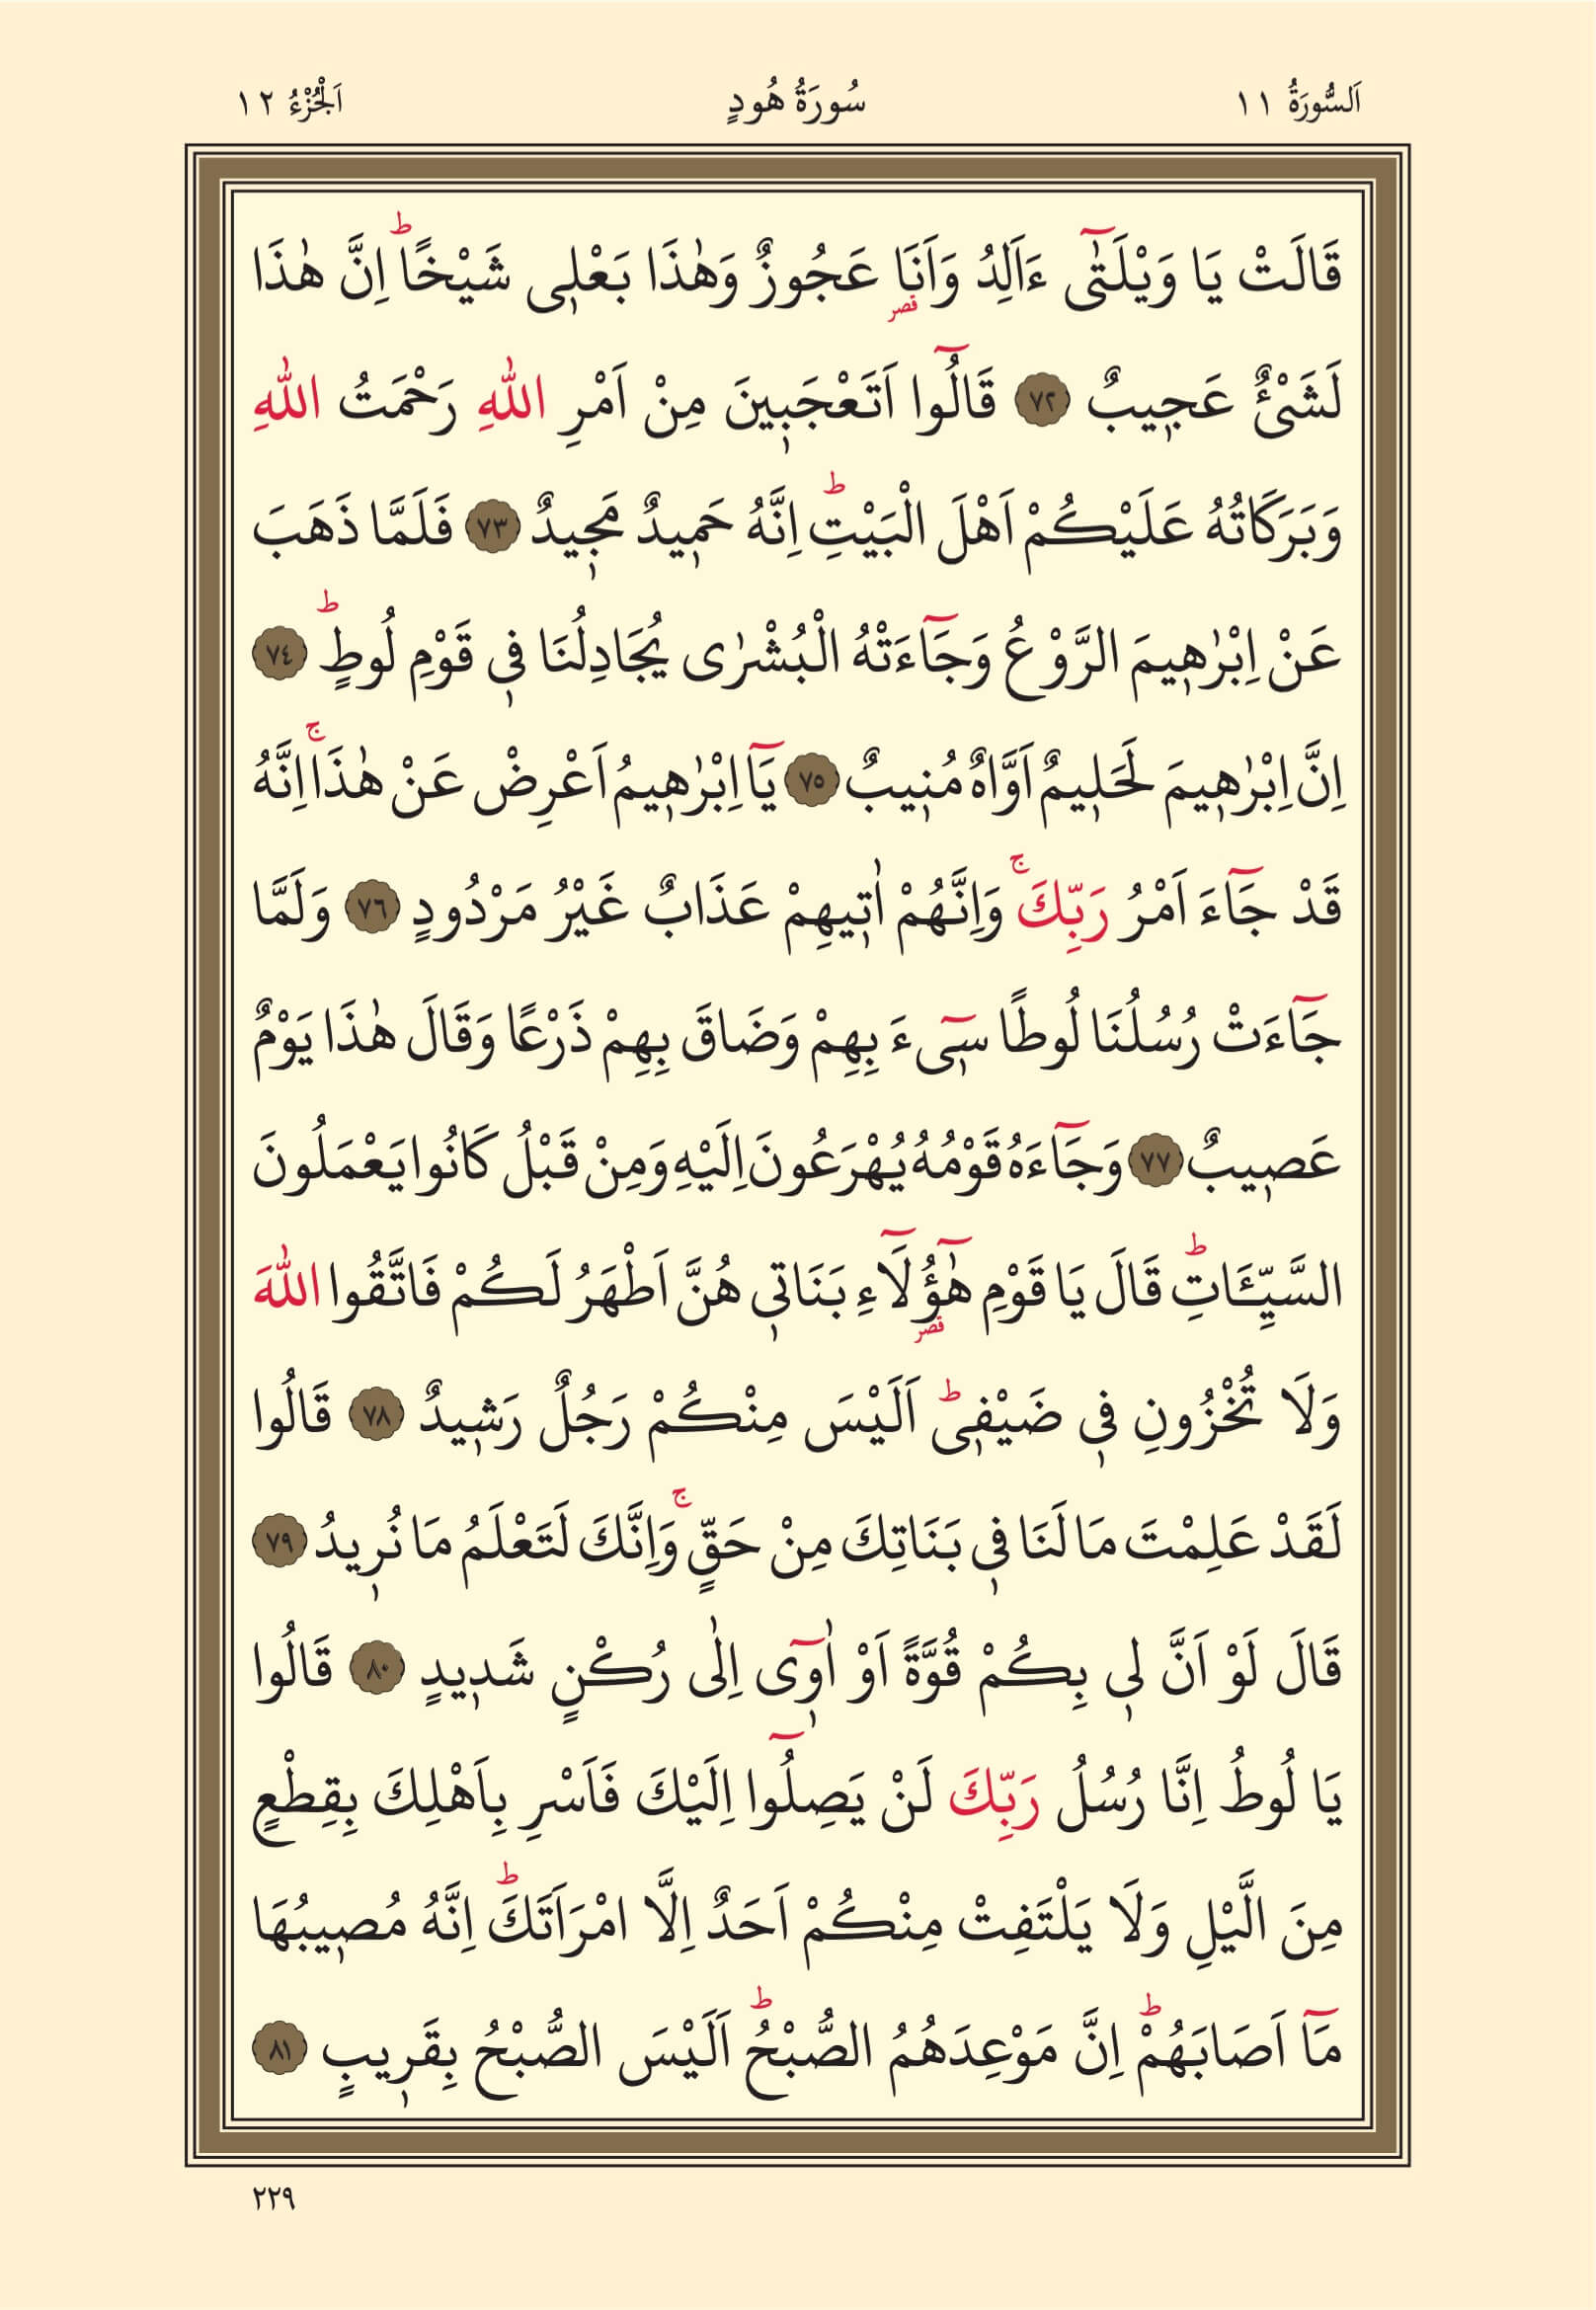 اَلسُّورَةُ ١١ سُورَةُ هُودٍ اَلْجُزْءُ ١٢
قَالَتْ يَا وَيْلَتٰٓى ءَاَلِدُ وَاَنَا۬ عَجُوزٌ وَهٰذَا بَعْل۪ى شَيْخًاۜ اِنَّ هٰذَا
لَشَىْءٌ عَج۪يبٌ ﴿٧٢﴾ قَالُٓوا اَتَعْجَب۪ينَ مِنْ اَمْرِ اللّٰهِ رَحْمَتُ اللّٰهِ
وَبَرَكَاتُهُ عَلَيْكُمْ اَهْلَ الْبَيْتِۜ اِنَّهُ حَم۪يدٌ مَج۪يدٌ ﴿٧٣﴾ فَلَمَّا ذَهَبَ
عَنْ اِبْرٰه۪يمَ الرَّوْعُ وَجَٓاءَتْهُ الْبُشْرٰى يُجَادِلُنَا ف۪ى قَوْمِ لُوطٍۜ ﴿٧٤﴾
اِنَّ اِبْرٰه۪يمَ لَحَل۪يمٌ اَوَّاهٌ مُن۪يبٌ ﴿٧٥﴾ يَٓا اِبْرٰه۪يمُ اَعْرِضْ عَنْ هٰذَاۚ اِنَّهُ
قَدْ جَٓاءَ اَمْرُ رَبِّكَۚ وَاِنَّهُمْ اٰت۪يهِمْ عَذَابٌ غَيْرُ مَرْدُودٍ ﴿٧٦﴾ وَلَمَّا
جَٓاءَتْ رُسُلُنَا لُوطًا س۪ٓىءَ بِهِمْ وَضَاقَ بِهِمْ ذَرْعًا وَقَالَ هٰذَا يَوْمٌ
عَص۪يبٌ ﴿٧٧﴾ وَجَٓاءَهُ قَوْمُهُ يُهْرَعُونَ اِلَيْهِ وَمِنْ قَبْلُ كَانُوا يَعْمَلُونَ
السَّيِّـَٔاتِۜ قَالَ يَا قَوْمِ هٰٓؤُ۬لَٓاءِ بَنَات۪ى هُنَّ اَطْهَرُ لَكُمْ فَاتَّقُوا اللّٰهَ
وَلَا تُخْزُونِ ف۪ى ضَيْف۪ىۜ اَلَيْسَ مِنْكُمْ رَجُلٌ رَش۪يدٌ ﴿٧٨﴾ قَالُوا
لَقَدْ عَلِمْتَ مَا لَنَا ف۪ى بَنَاتِكَ مِنْ حَقٍّۚ وَاِنَّكَ لَتَعْلَمُ مَا نُر۪يدُ ﴿٧٩﴾
قَالَ لَوْ اَنَّ ل۪ى بِكُمْ قُوَّةً اَوْ اٰو۪ٓى اِلٰى رُكْنٍ شَد۪يدٍ ﴿٨٠﴾ قَالُوا
يَا لُوطُ اِنَّا رُسُلُ رَبِّكَ لَنْ يَصِلُٓوا اِلَيْكَ فَاَسْرِ بِاَهْلِكَ بِقِطْعٍ
مِنَ الَّيْلِ وَلَا يَلْتَفِتْ مِنْكُمْ اَحَدٌ اِلَّا امْرَاَتَكَۜ اِنَّهُ مُص۪يبُهَا
مَٓا اَصَابَهُمْۜ اِنَّ مَوْعِدَهُمُ الصُّبْحُۜ اَلَيْسَ الصُّبْحُ بِقَر۪يبٍ ﴿٨١﴾
٢٢٩